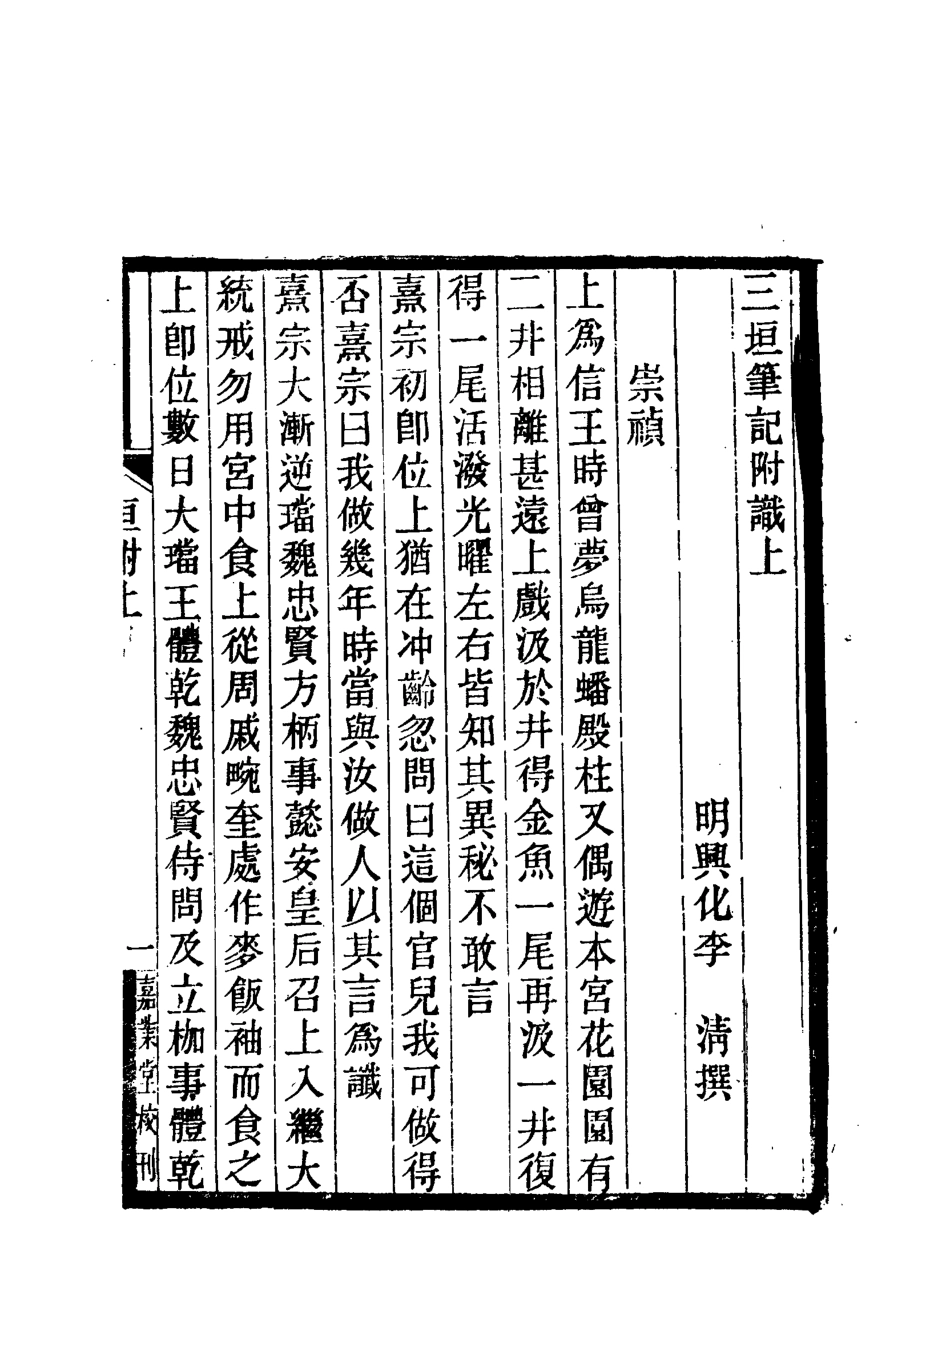 三垣筆記附識上
明興化李　淸撰
崇禎
上爲信王時曾夢烏龍蟠殿柱又偶遊本宮花園園有
二井相離甚遠上戲汲於井得金魚一尾再汲一井復
得一尾活潑光曜左右皆知其異秘不敢言
熹宗初卽位上猶在冲齡忽問曰這個官兒我可做得
否熹宗曰我做幾年時當與汝做人以其言爲讖
熹宗大漸逆璫魏忠賢方柄事懿安皇后召上入繼大
統戒勿用宮中食上從周戚畹奎處作麥飯袖而食之
上卽位數日大璫王體乾魏忠賢侍問及立枷事體乾
垣附上
一
嘉業堂校刊